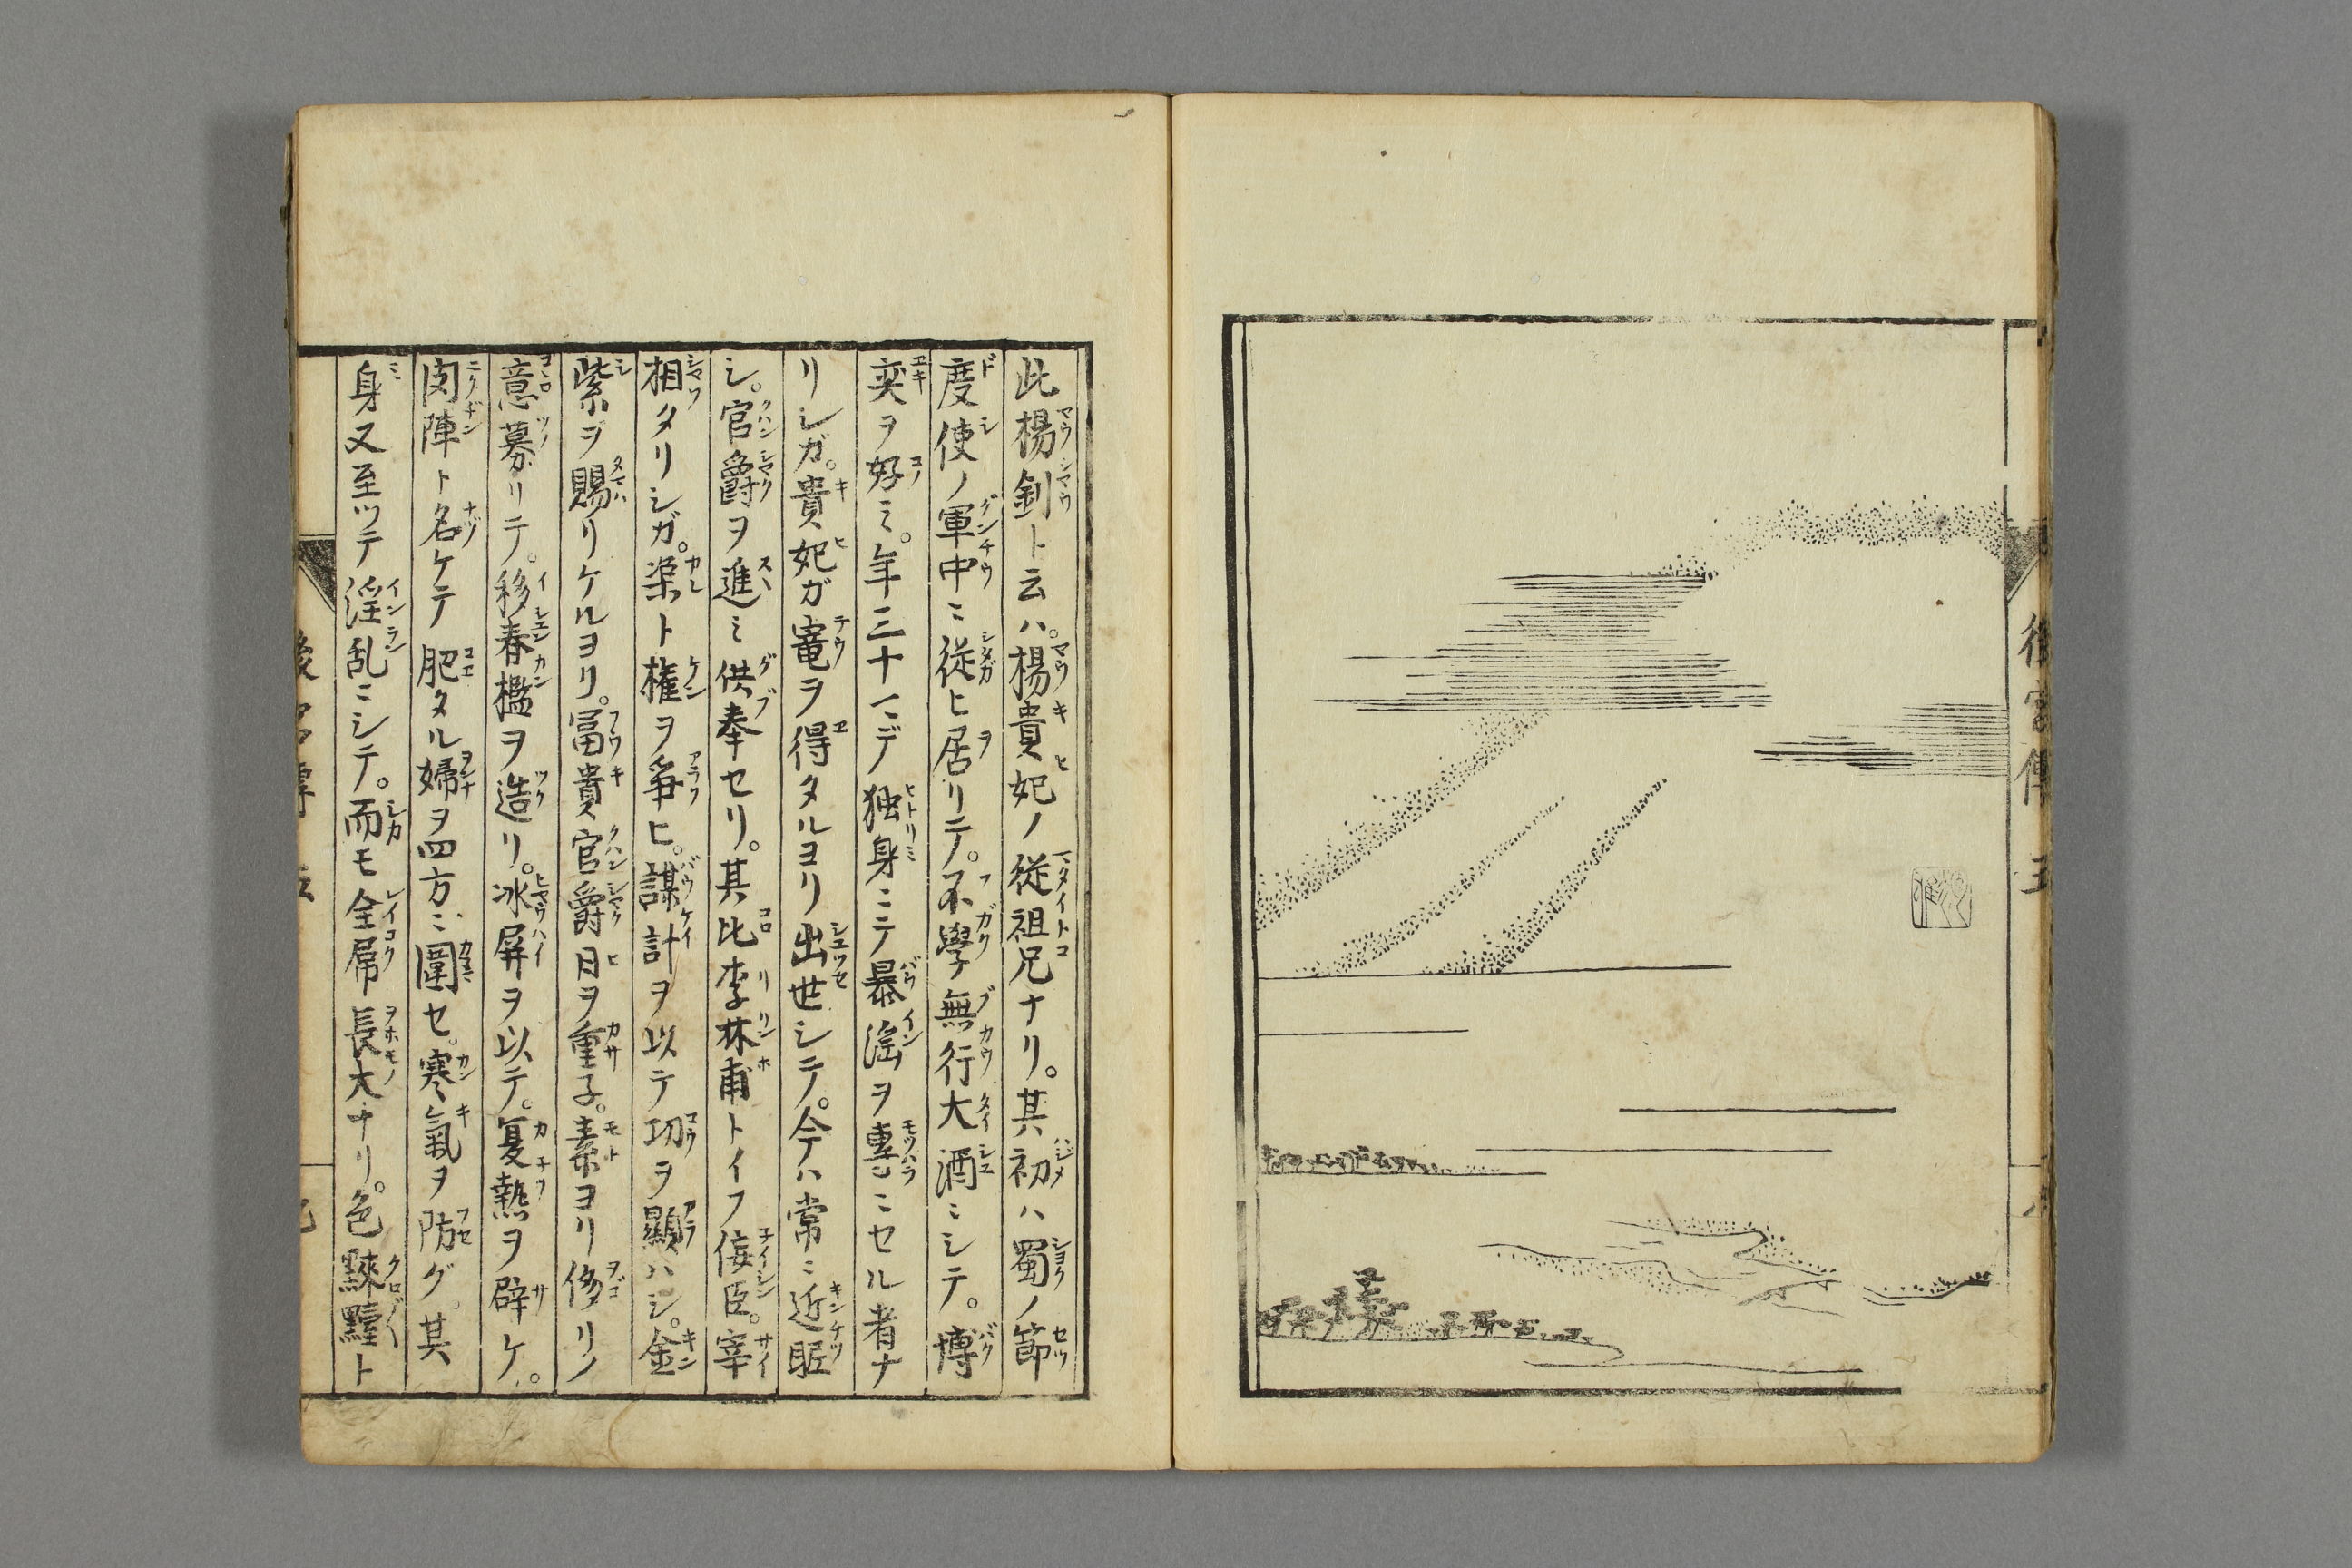 後宮傳 五
此楊釗ト云ハ。楊貴妃ノ従祖兄ナリ。其初ハ蜀ノ節
度使ノ軍中ニ従ヒ居リテ。不學無行大酒ニシテ。博
奕ヲ好ミ。年三十ニデ独身ニテ暴淫ヲ專ニセル者ナ
リシガ。貴妃ガ寵ヲ得タルヨリ出世シテ。今ハ常ニ近昵
シ。官爵ヲ進ミ供奉セリ。其比李林甫トイフ佞臣。宰
相タリシガ。渠ト権ヲ爭ヒ。謀計ヲ以テ功ヲ顯ハシ。金
紫ヲ賜リケルヨリ。冨貴官爵日ヲ重子。素ヨリ侈リノ
意募リテ。移春檻ヲ造リ。冰屏ヲ以テ。夏熱ヲ辟ケ。
肉陣ト名ケテ肥タル婦ヲ四方ニ圍セ。寒氣ヲ防グ。其
身又至ツテ淫乱ニシテ。而モ全屌長大ナリ。色黰黯ト